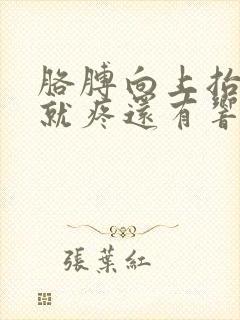 胳膊向上抬
就疼還有響
張葉紅